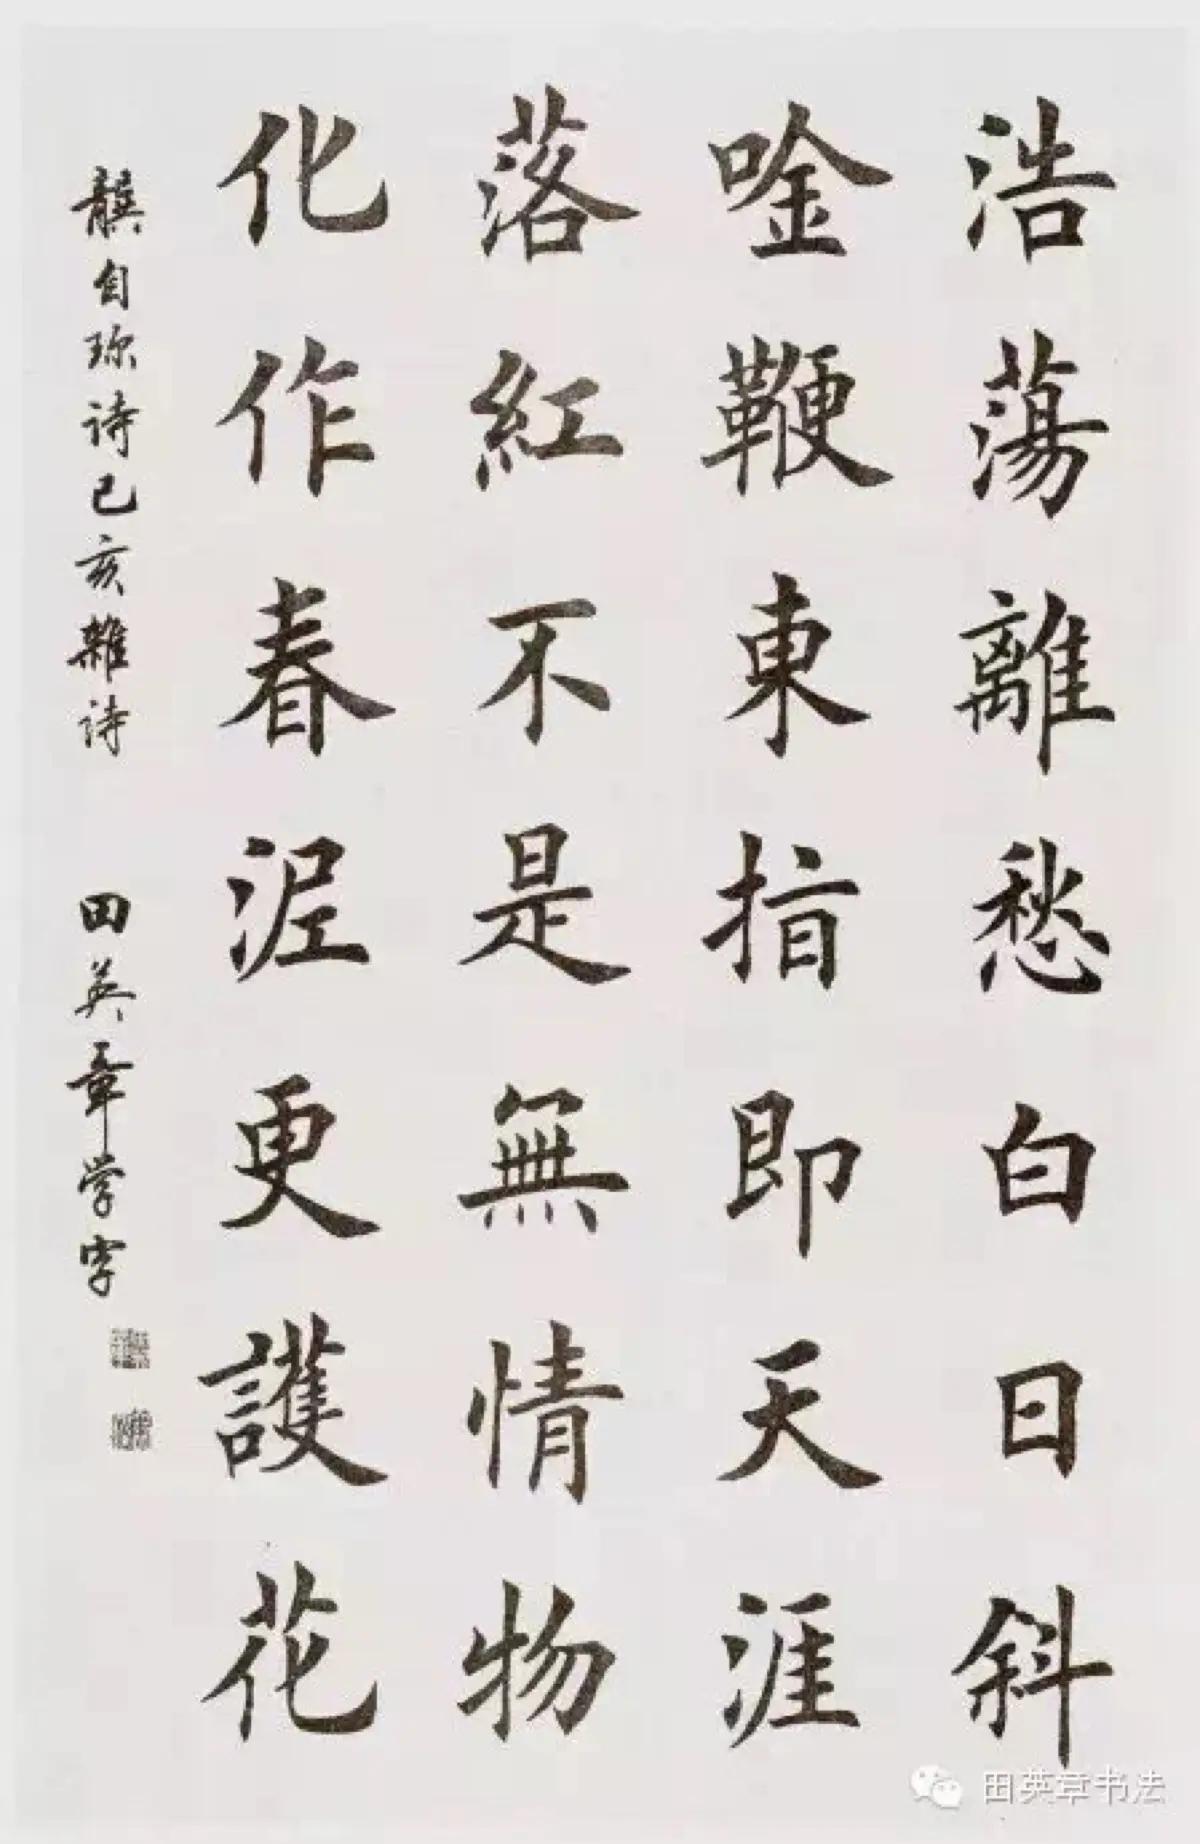 浩蕩離愁白日斜
唫鞭東指即天涯
落紅不是無情物
化作春泥更護花
龔自珎诗己亥雜诗 田英章学字
田英章书法